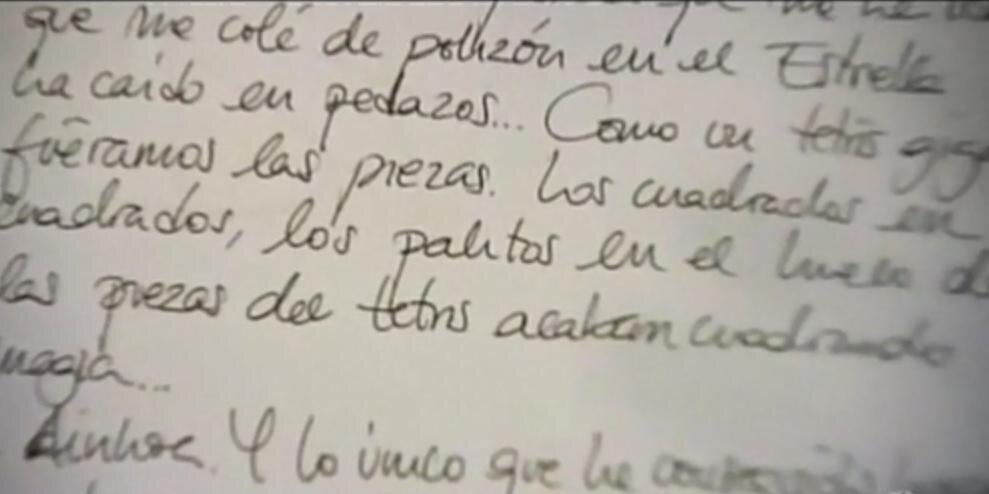 que me he
que me colé de polizón en el Estrella
ha caído en pedazos... Como un tetris
fuéramos las piezas. Los cuadrados en
cuadrados, los palitos en el hueco d
las piezas del tetris acaban cuadrando
magia...
Ainhoa. Y lo único que he